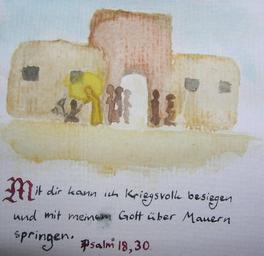 Mit dir kann ich Kriegsvolk besiegen
und mit meinem Gott über Mauern
springen.
Psalm 18,30